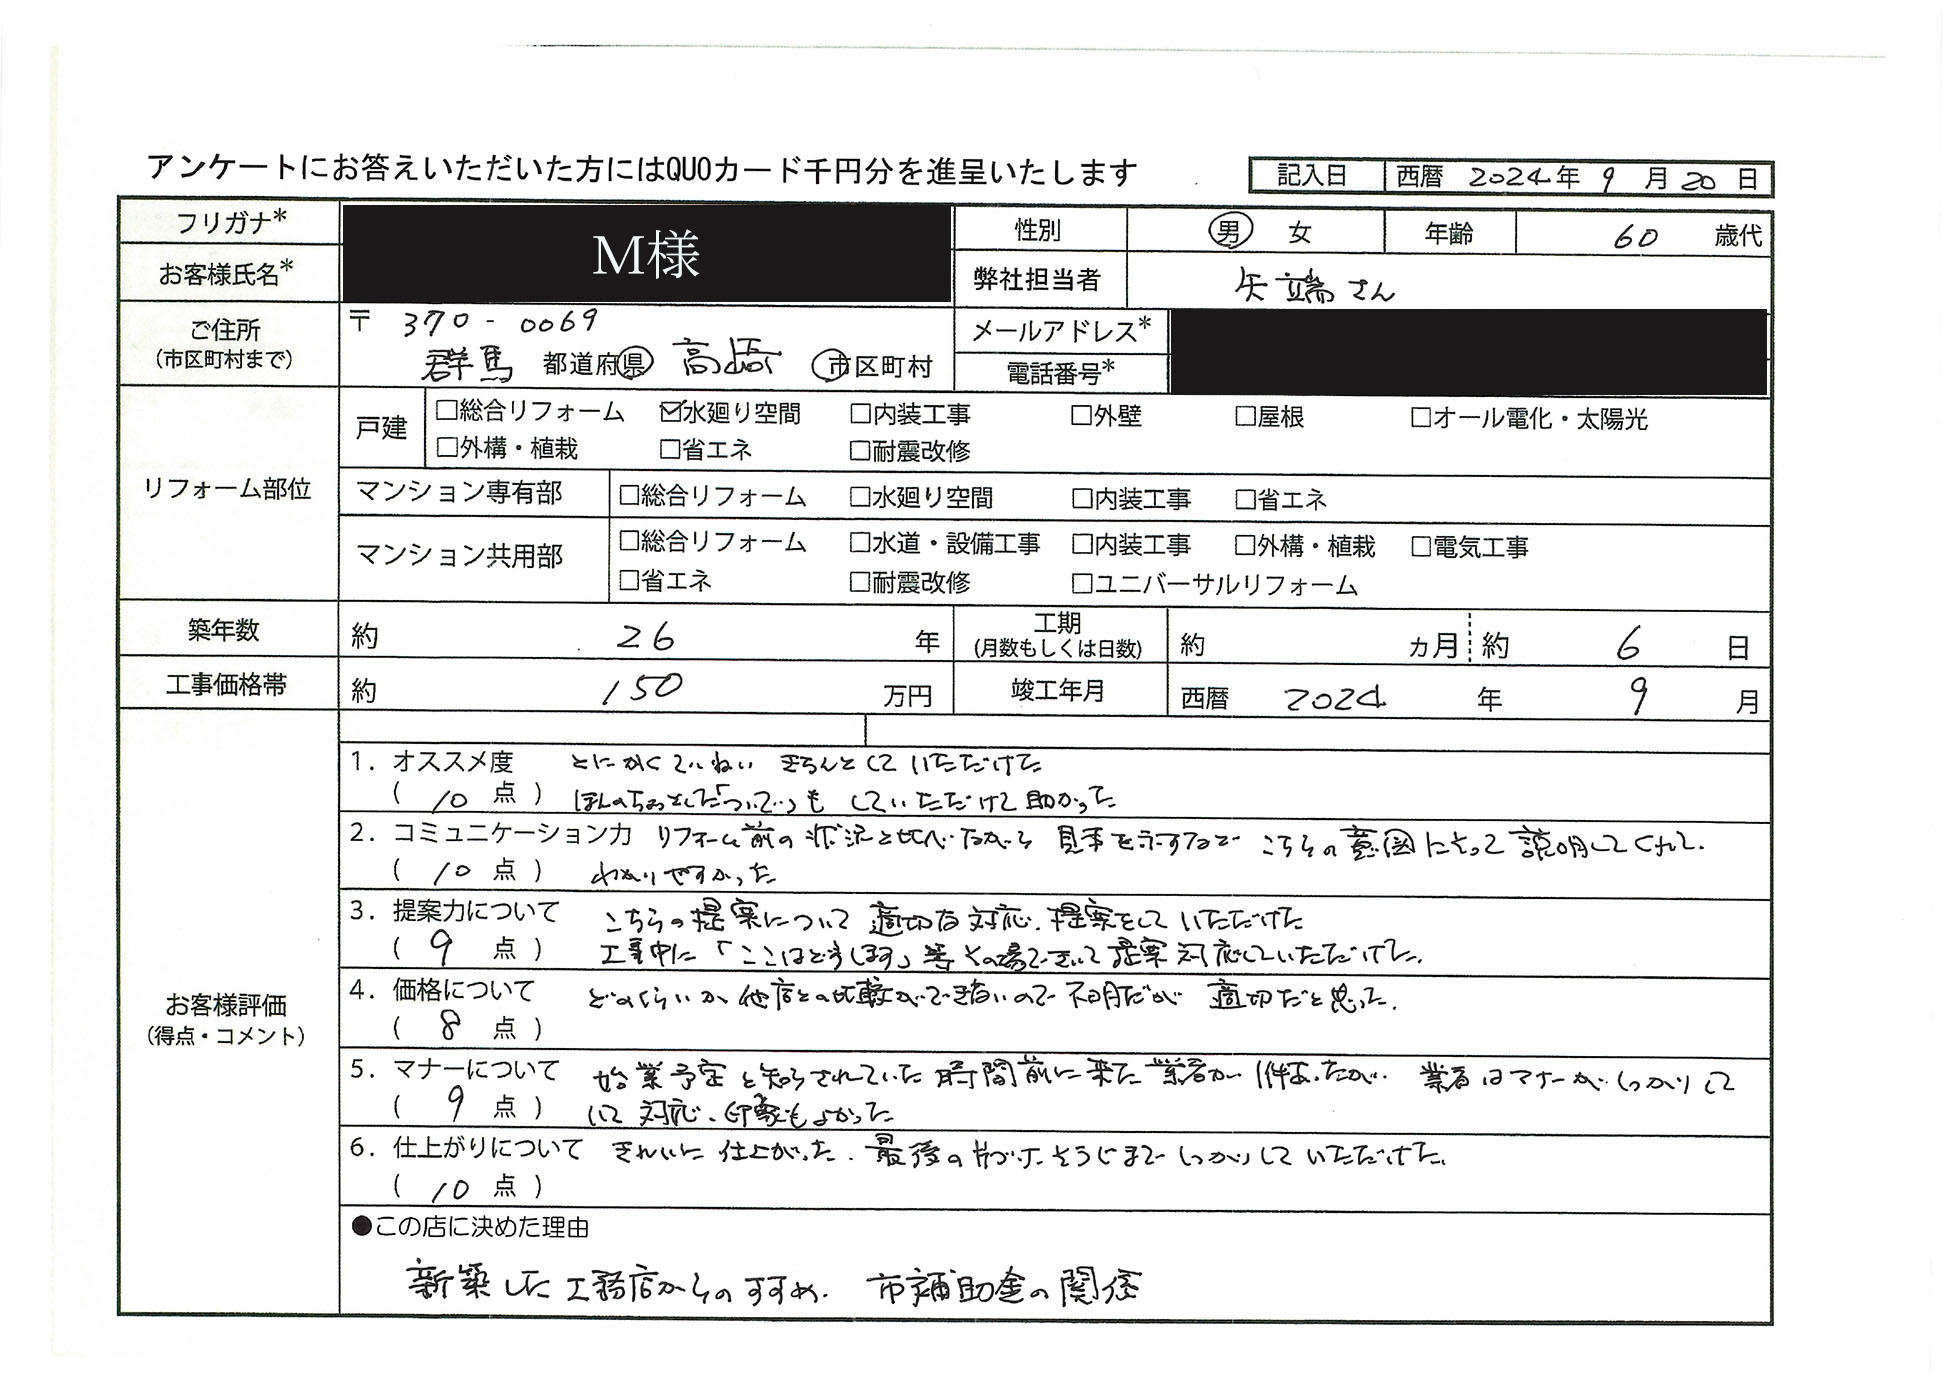 アンケートにお答えいただいた方にはQUOカード千円分を進呈いたします
記入日 西暦 2024年 9月 20日
フリガナ*
お客様氏名*
M様
性別 男 女 年齢 60 歳代
弊社担当者 矢端さん
ご住所
(市区町村まで)
〒 370-0069
群馬 都道府県 高崎 市区町村
メールアドレス*
電話番号*
リフォーム部位
戸建
□総合リフォーム ☑水廻り空間 □内装工事 □外壁 □屋根 □オール電化・太陽光
□外構・植栽 □省エネ □耐震改修
マンション専有部 □総合リフォーム □水廻り空間 □内装工事 □省エネ
マンション共用部
□総合リフォーム □水道・設備工事 □内装工事 □外構・植栽 □電気工事
□省エネ □耐震改修 □ユニバーサルリフォーム
築年数 約 26 年
工期
(月数もしくは日数)
約 カ月 約 6 日
工事価格帯 約 150 万円 竣工年月 西暦 2024 年 9 月
お客様評価
(得点・コメント)
1. オススメ度 とにかくていねい きちんとしていただけた
( 10 点 ) ほんのちょっとした「ついで」も していただけて助かった
2. コミュニケーション力 リフォーム前の状況と比べながら 見本を示すなどで こちらの意図にそって説明してくれて、
( 10 点 ) わかりやすかった
3. 提案力について こちらの提案について 適切な対応、提案をしていただけた
( 9 点 ) 工事中に「ここはどうします」等 その場で 提案 対応していただけた。
4. 価格について どのくらいか 他店との比較ができないので不明だが 適切だと思った。
( 8 点 )
5. マナーについて 始業予定と知らされていた時間前に来た業者が1件あったが、業者はマナーがしっかりして
( 9 点 ) いて対応、印象もよかった
6. 仕上がりについて きれいに仕上がった。最後の片づけ、そうじまでしっかりしていただけた。
( 10 点 )
●この店に決めた理由
新築した工務店からのすすめ、市補助金の関係